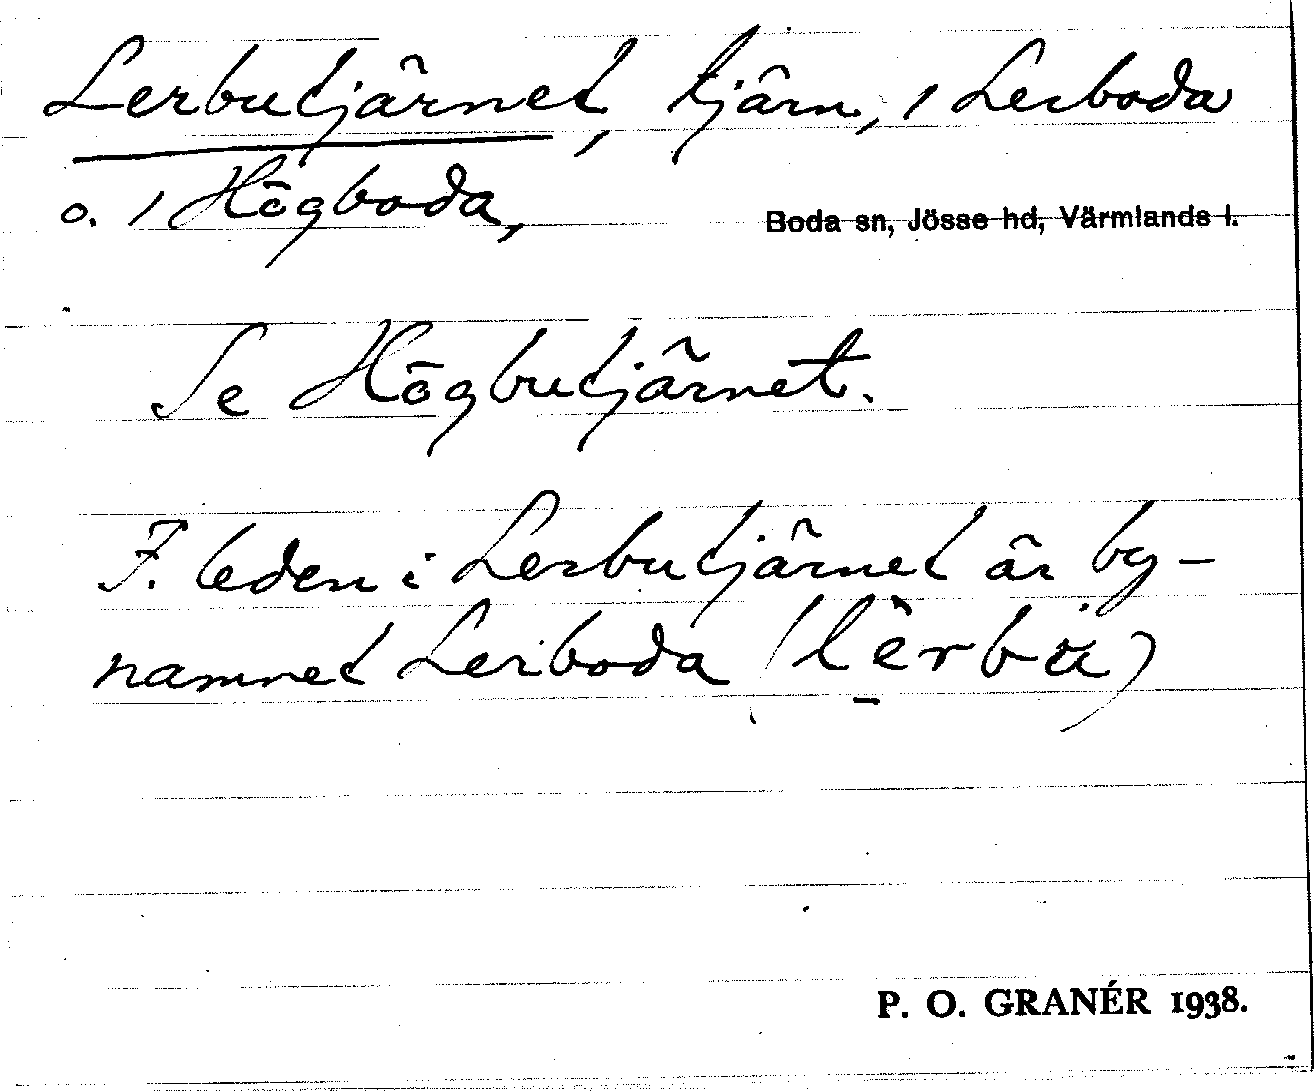 Lerbutjärnet, tjärn, 1 Lerboda
o. 1 Högboda,
Boda sn, Jösse hd, Värmlands l.
Se Högbutjärnet.
F. leden i Lerbutjärnet är by-
namnet Lerboda (lèrbü)
P. O. GRANÉR 1938.